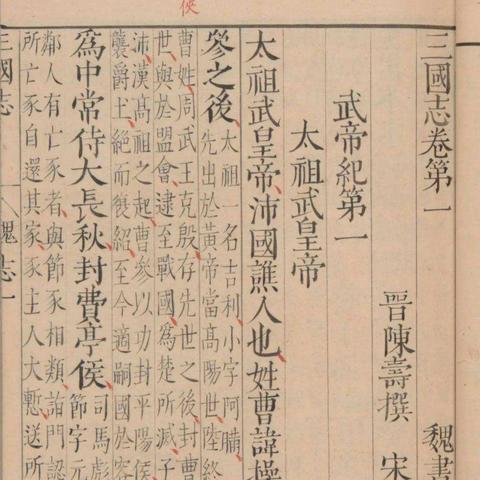 三國志卷第一 魏書
晉陳壽撰 宋
武帝紀第一
太祖武皇帝
太祖武皇帝沛國譙人也姓曹諱操
參之後
太祖一名吉利小字阿瞞
先出於黃帝當高陽世陸終
曹姓周武王克殷存先世之後封曹
世與於盟會逮至戰國為楚所滅子
沛漢高祖之起曹參以功封平陽侯
襲爵土絕而復紹至今適嗣國於容
為中常侍大長秋封費亭侯
司馬彪
節字元
鄰人有亡豕者與節豕相類詣門認
所亡豕自還其家豕主人大慙送所
三國志
魏志一
侯